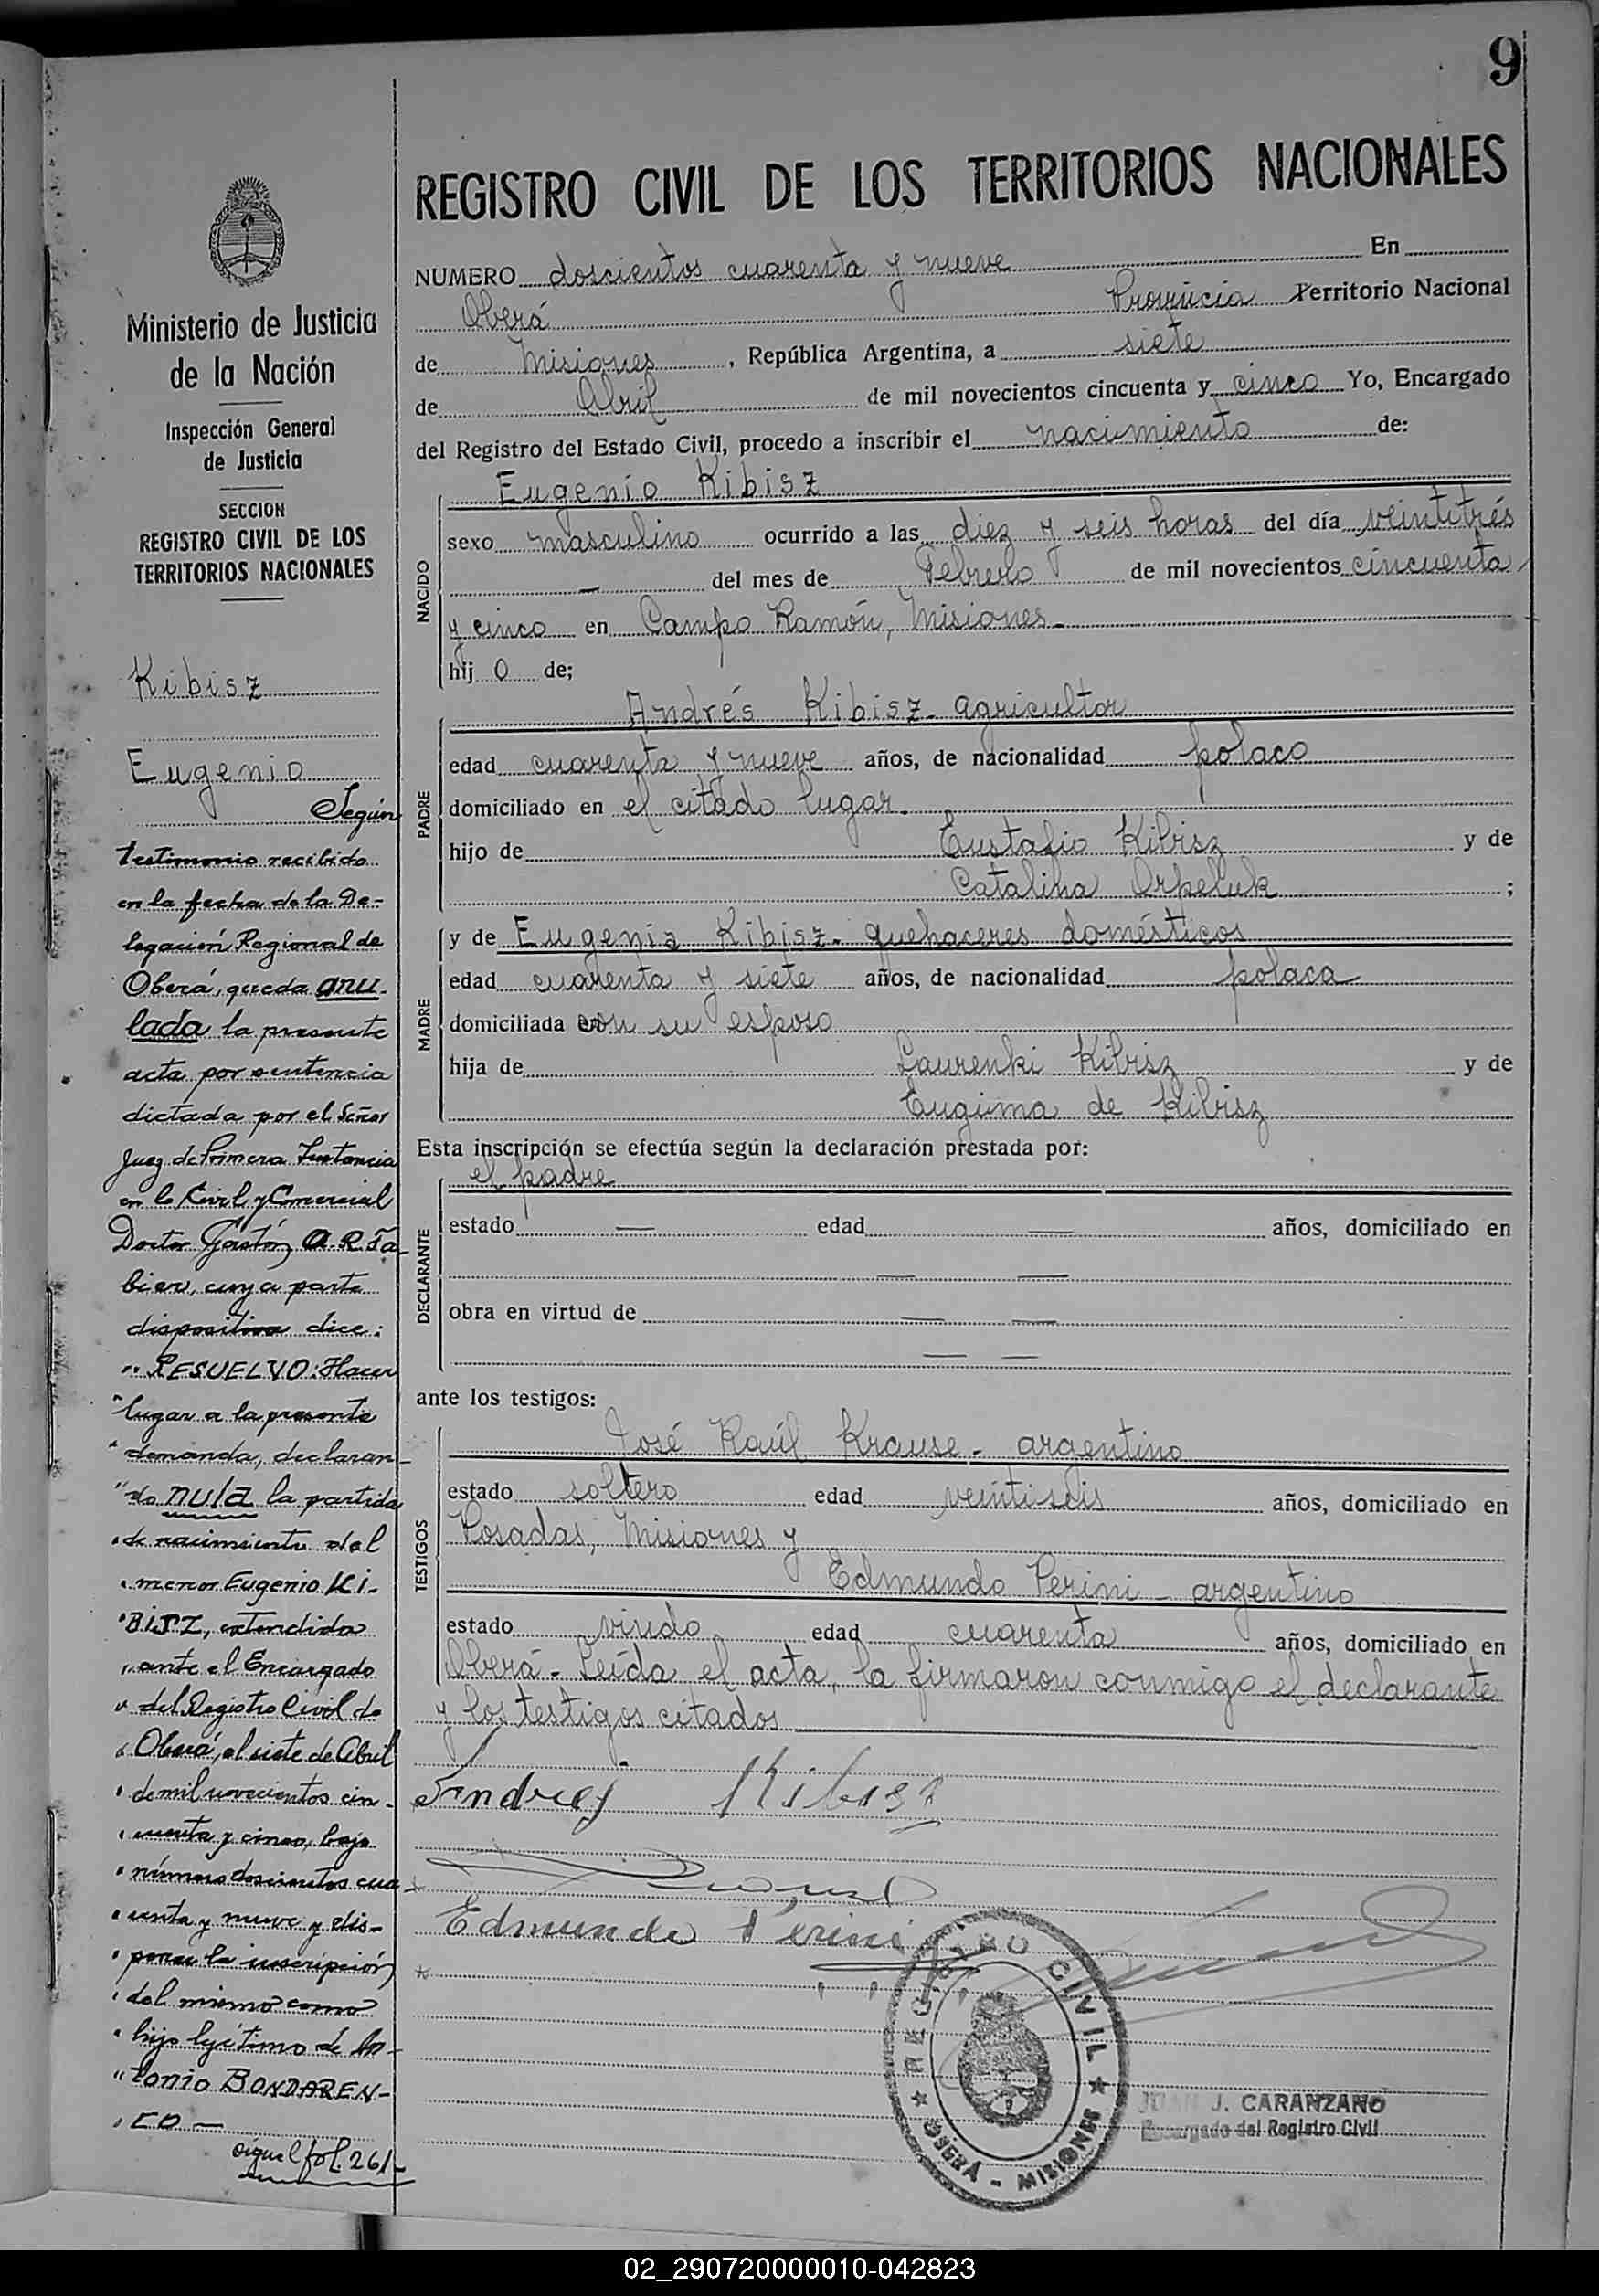 9
REGISTRO CIVIL DE LOS TERRITORIOS NACIONALES
NUMERO doscientos cuarenta y nueve En
Oberá Provincia Territorio Nacional
de Misiones, República Argentina, a siete
de Abril de mil novecientos cincuenta y cinco Yo, Encargado
del Registro del Estado Civil, procedo a inscribir el nacimiento de:
NACIDO
Eugenio Kibisz
sexo masculino ocurrido a las diez y seis horas del día veintitrés
— del mes de Febrero de mil novecientos cincuenta
y cinco en Campo Ramón, Misiones.
hij o de;
PADRE
Andrés Kibisz - agricultor
edad cuarenta y nueve años, de nacionalidad polaco
domiciliado en el citado lugar.
hijo de Eustafio Kibisz y de
Catalina Orpeluk ;
MADRE
y de Eugenia Kibisz - quehaceres domésticos
edad cuarenta y siete años, de nacionalidad polaca
domiciliada con su esposo
hija de Laurenki Kibisz y de
Eugima de Kibisz
Esta inscripción se efectúa según la declaración prestada por:
DECLARANTE
el padre
estado — edad — años, domiciliado en
— —
obra en virtud de — —
— —
ante los testigos:
TESTIGOS
José Raúl Krause - argentino
estado soltero edad veintiséis años, domiciliado en
Posadas, Misiones y
Edmundo Perini - argentino
estado viudo edad cuarenta años, domiciliado en
Oberá - Leída el acta, la firmaron conmigo el declarante
y los testigos citados
Andrej Kibisz
Edmundo Perini
REGISTRO CIVIL
OBERÁ - MISIONES
JUAN J. CARANZANO
Encargado del Registro Civil
Ministerio de Justicia
de la Nación
Inspección General
de Justicia
SECCION
REGISTRO CIVIL DE LOS
TERRITORIOS NACIONALES
Kibisz
Eugenio
Según
testimonio recibido
en la fecha de la De-
legación Regional de
Oberá, queda anu-
lada la presente
acta por sentencia
dictada por el Señor
Juez de Primera Instancia
en lo Civil y Comercial
Doctor Gastón A. R. Ta-
bier, cuya parte
dispositiva dice:
"RESUELVO: Hacer
"lugar a la presente
"demanda, declaran-
"do nula la partida
"de nacimiento del
"menor Eugenio Ki-
"BISZ, extendida
"ante el Encargado
"del Registro Civil de
"Oberá, el siete de Abril
"de mil novecientos cin-
"cuenta y cinco, bajo
"número doscientos cua-
"renta y nueve y dis-
"poner la inscripción
"del mismo como
"hijo legítimo de An-
"tonio BONDAREN-
"CO. —
sigue al fol. 261-
02_290720000010-042823